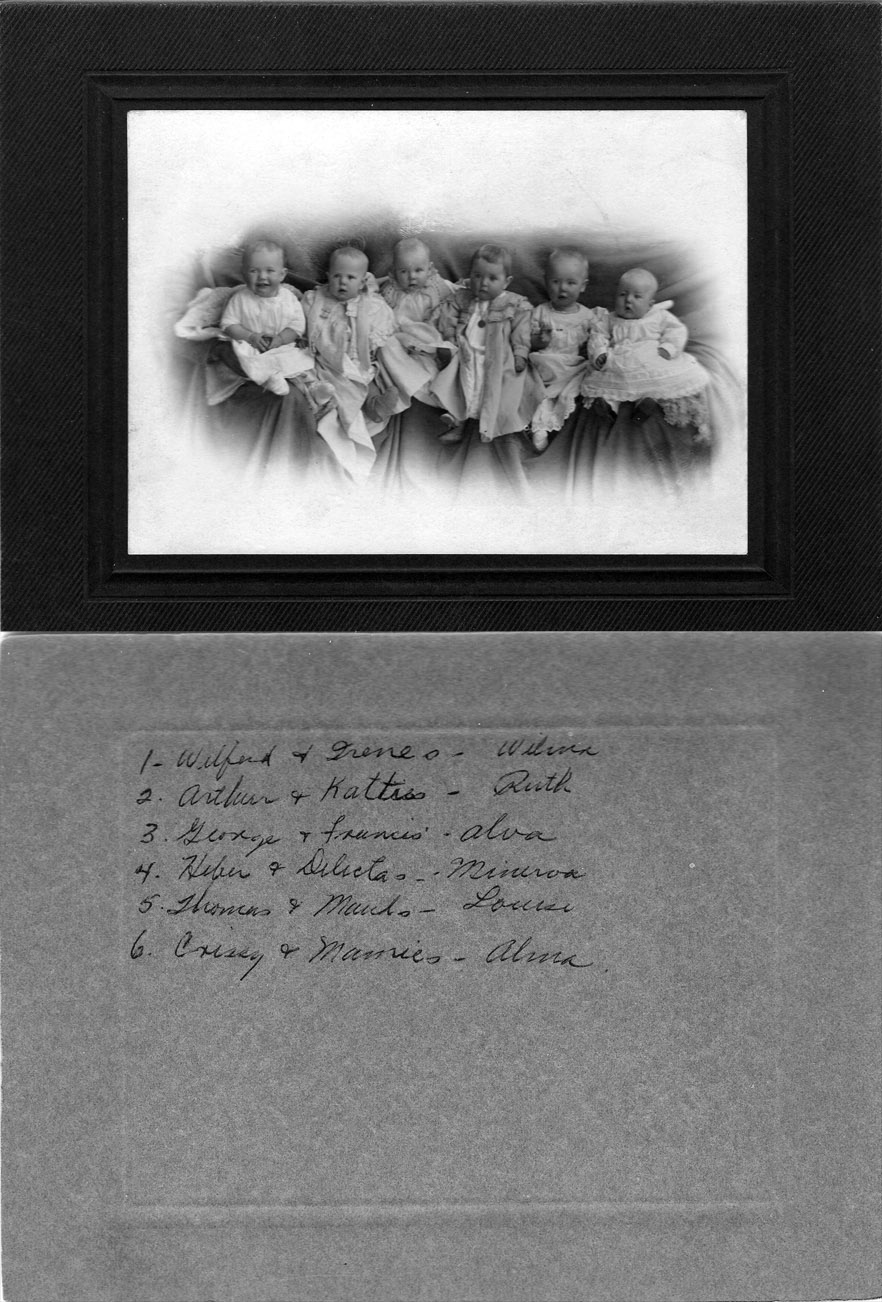 1- Wilford & Irenes - Wilma
2. Arthur & Katties - Ruth
3. George & Francis' - Alva
4. Heber & Delectas - Minerva
5. Thomas & Mauds - Louise
6. Crissy & Mamies - Alma